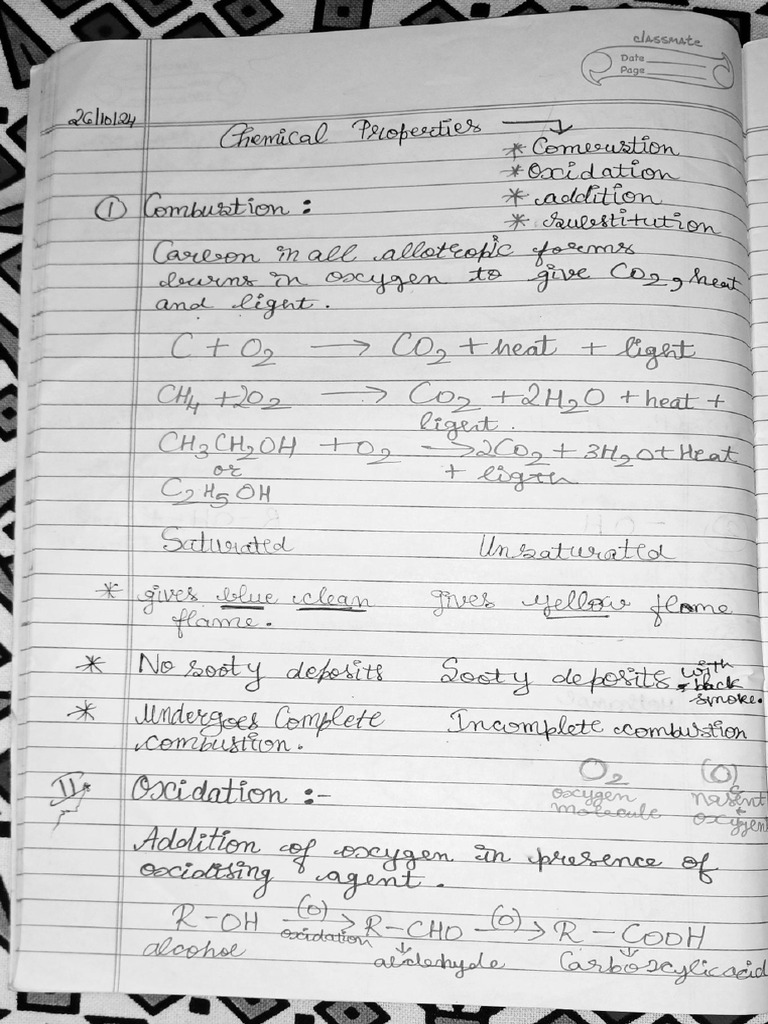 classmate
Date
Page
26/10/24
Chemical Properties →
* Combustion
* Oxidation
* addition
* substitution
① Combustion :
Carbon in all allotropic forms
burns in oxygen to give CO2, heat
and light.
C + O2 → CO2 + heat + light
CH4 + 2O2 → CO2 + 2H2O + heat +
light.
CH3CH2OH + O2 → 2CO2 + 3H2O + Heat
or + ligth
C2H5OH
Saturated Unsaturated
* gives blue clean gives yellow flame
flame.
* No sooty deposits Sooty deposits with
black
smoke.
* Undergoes Complete Incomplete combustion
combustion.
II Oxidation :-
O2 (O)
oxygen nasent
molecule oxygen
Addition of oxygen in presence of
oxidising agent.
R-OH (O)→ R-CHO (O)→ R-COOH
alcohol oxidation aldehyde Carboxylic acid